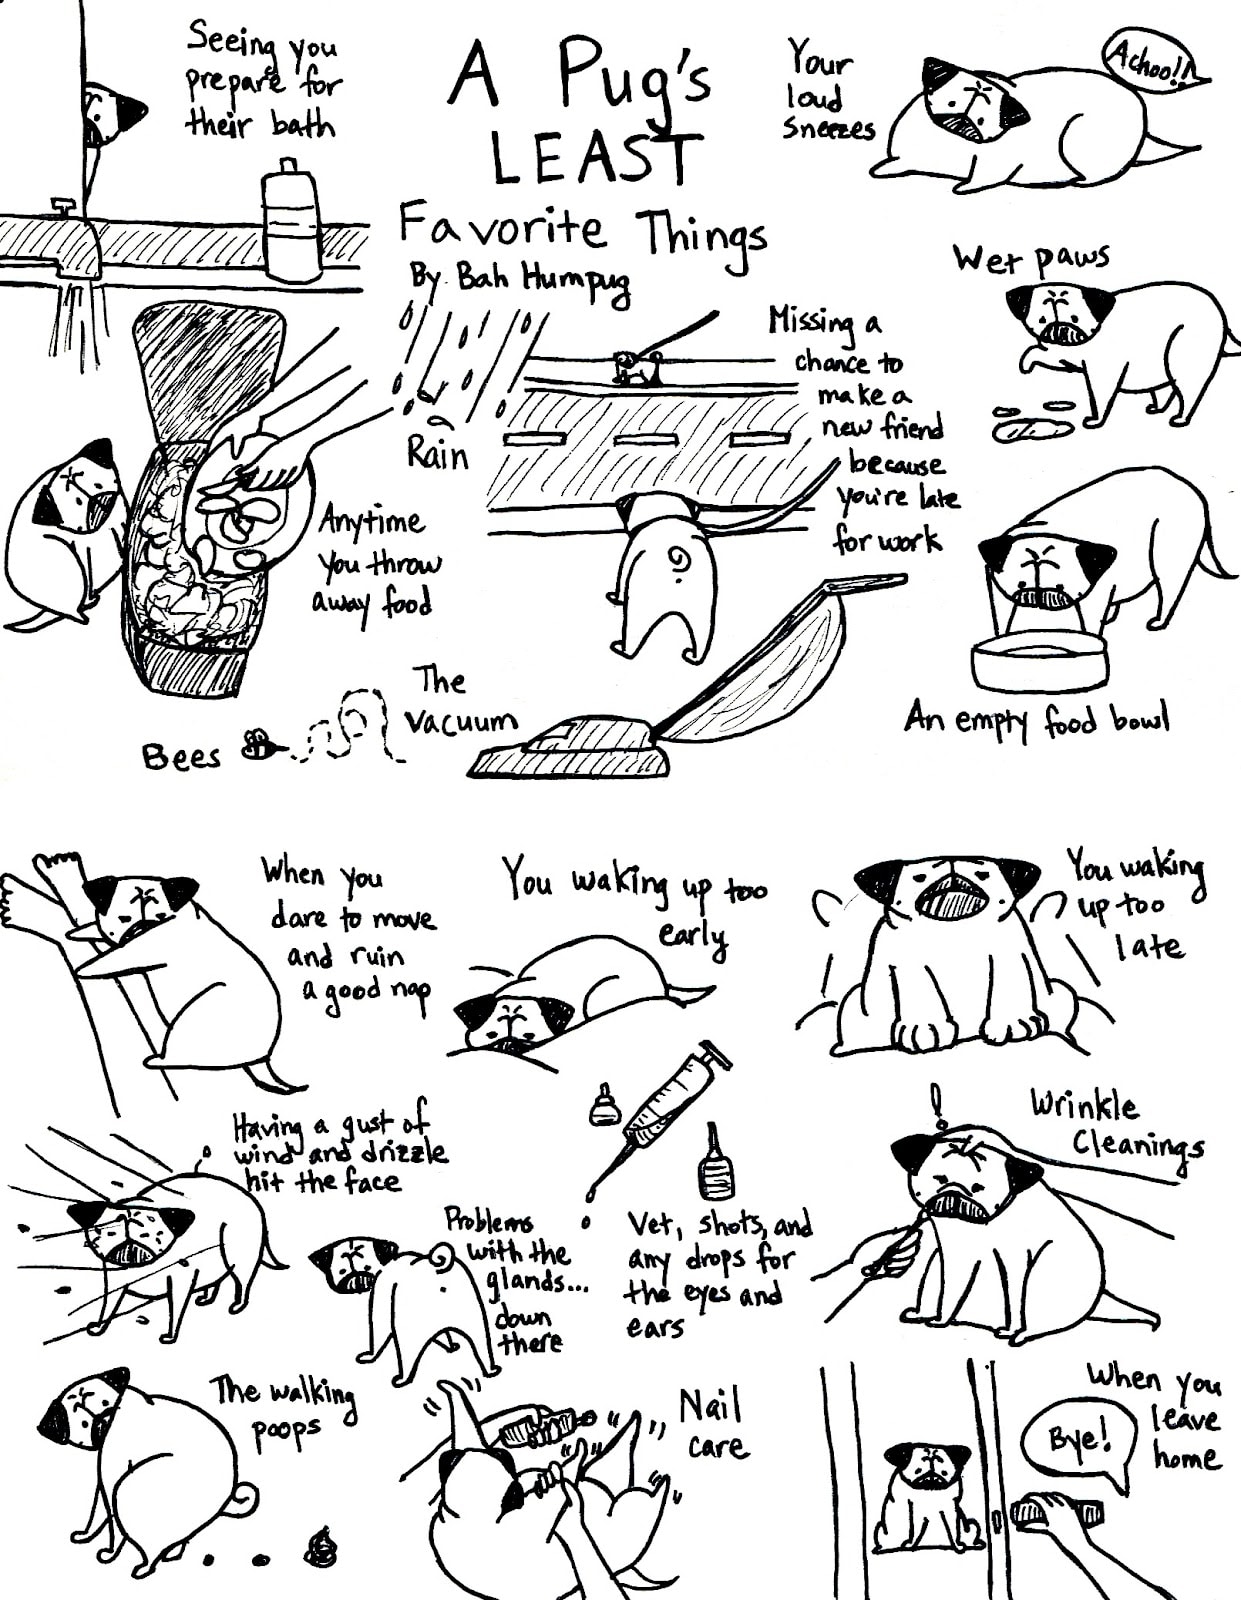 A Pug's
LEAST
Favorite Things
By Bah Humpug
Seeing you
prepare for
their bath
Your
loud
sneezes
Achoo!!
Wet paws
Rain
Missing a
chance to
make a
new friend
because
you're late
for work
Anytime
you throw
away food
An empty food bowl
The
vacuum
Bees
When you
dare to move
and ruin
a good nap
You waking up too
early
You waking
up too
late
Having a gust of
wind and drizzle
hit the face
Problems
with the
glands...
down
there
Vet, shots, and
any drops for
the eyes and
ears
Wrinkle
Cleanings
The walking
poops
Nail
care
When you
leave
home
Bye!